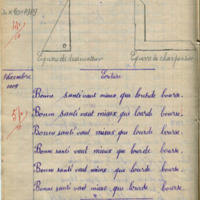 Equerre de dessinateur Equerre de charpentier
Ecriture
Novembre
1909
Bonne santé vaut mieux que lourde bourse.
Bonne santé vaut mieux que lourde bourse.
Bonne santé vaut mieux que lourde bourse.
Bonne santé vaut mieux que lourde bourse.
Bonne santé vaut mieux que lourde bourse.
Bonne santé vaut mieux que lourde bourse.